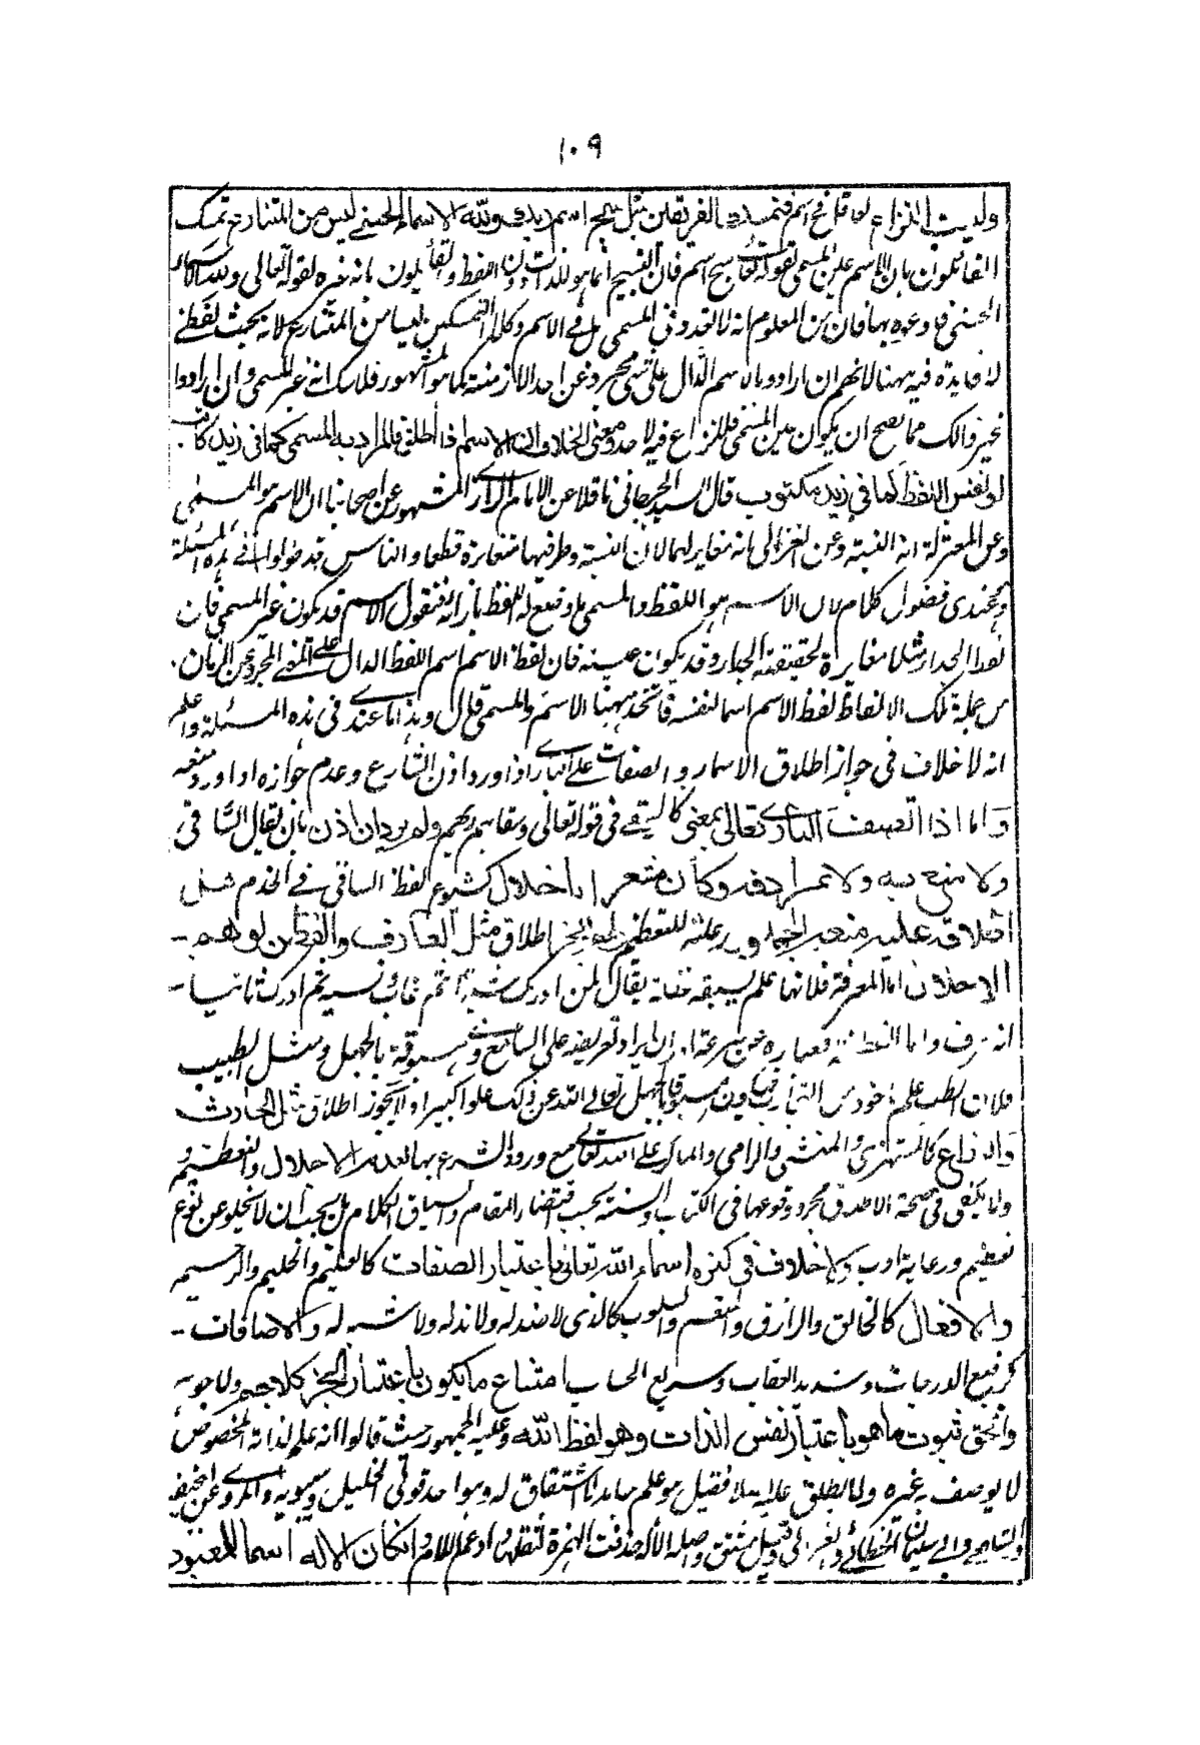 ۱۰۹
وليت النزاع فتمسك الفريقين بمثل سبح اسم ربك ولله الاسماء الحسنى ليس من المتنازع تمسك
القائلون بان الاسم عين المسمى بقوله تعالى سبح اسم فان التسبيح انما هو للذات دون اللفظ والقائلون بانه غيره لقوله تعالى ولله الاسماء
الحسنى فادعوه بها فان من المعلوم انه لا تعدد فى المسمى بل فى الاسم وكلا التمسكين ليسا من المتنازع لانه بحث لفظى
لا فايدة فيه ههنا لانهم ان ارادوا بالاسم الدال على شى مجرد عن احد الازمنة كما هو المشهور فلا شك انه غير المسمى وان ارادوا
غير ذالك مما يصح ان يكون عين المسمى فلا نزاع فيه لاحد ومعنى الخلاف ان الاسم اذا اطلق فالمراد به المسمى كما فى زيد كاتب
او نفس اللفظ كما فى زيد مكتوب قال السيد الجرجانى ناقلا عن الامام الرازى المشهور عن اصحابنا ان الاسم هو المسمى
وعن المعتزلة انه التسمية وعن الغزالى بانه مغاير لهما لان النسبة وطرفيها متغايرة قطعا والناس قد طولوا فى هذه المسئلة
وعندى فضول كلام لان الاسم هو اللفظ والمسمى ما وضع له اللفظ بازائه فنقول الاسم قد يكون غير المسمى فان
لفظ الجدار مثلا مغايرة لحقيقة الجدار وقد يكون عينه فان لفظ الاسم اسم اللفظ الدال على المعنى المجرد عن الزمان
من جملة تلك الالفاظ لفظ الاسم اسما لنفسه فاتحد ههنا الاسم والمسمى قال وهذا ما عندى فى هذه المسئلة واعلم
انه لا خلاف فى جواز اطلاق الاسماء والصفات على البارى اذا ورد اذن الشارع وعدم جوازه اذا ورد منعه
واما اذا اتصف البارى تعالى بمعنى كالسقى فى قوله تعالى وسقاهم ربهم ولم يرد اذن بان يقال الساقى
ولا منع به ولا مرادفه وكان مشعرا باخلال كشيوع لفظ الساقى فى الخدم مثل
اطلاقه عليه منعه الجمهور رعاية للتعظيم لم يجز اطلاق مثل العارف والفطن لوهم
الاخلال اما المعرفة فلانها علم يسبقه غفلة يقال لمن ادرك شيئا ثم غاب نسيه ثم ادركه ثانيا
انه عرف واما الفطنة فعبارة عن سرعة ادراك ايراد تعريضه على السامع وهى مسبوقة بالجهل ومثل الطبيب
فلان الطب علم ماخوذ من التجارب فيكون مسبوقا بالجهل تعالى الله عن ذلك علوا كبيرا ولا يجوز اطلاق مثل الحارث
والزارع كالمستهزى والمنشى والرامى والماكر على الله تعالى مع ورود الشرع بها لعدم الاجلال والتعظيم
ولا يكفى فى صحة الاطلاق مجرد وقوعها فى الكتاب والسنة بحسب اقتضاء المقام وسياق الكلام بل يجب ان لا يخلو عن نوع
تعظيم ورعاية ادب ولا خلاف فى كثرة اسماء الله تعالى باعتبار الصفات كالعليم والحليم والرحيم
والافعال كالخالق والرازق والسلوب كالذى لا ضد له ولا ند له ولا شبه له والاضافات
كرفيع الدرجات وشديد العقاب وسريع الحساب بامتناع ما يكون باعتبار الجزء كلا جسم ولا جوهر
والحق ثبوت ما هو باعتبار نفس الذات وهو لفظ الله وعليه الجمهور حيث قالوا انه علم لذاته المخصوص
لا يوصف به غيره ولا يطلق عليه بلا فقيل هو علم جامد لا اشتقاق له وهو احد قولى الخليل وسيبويه والمروى عن ابى حنيفة
والشافعى وابى سليمان الخطابى والغزالى وقيل مشتق واصله الاله حذفت الهمزة لثقلها وادغم اللام وكان الاله اسما للمعبود